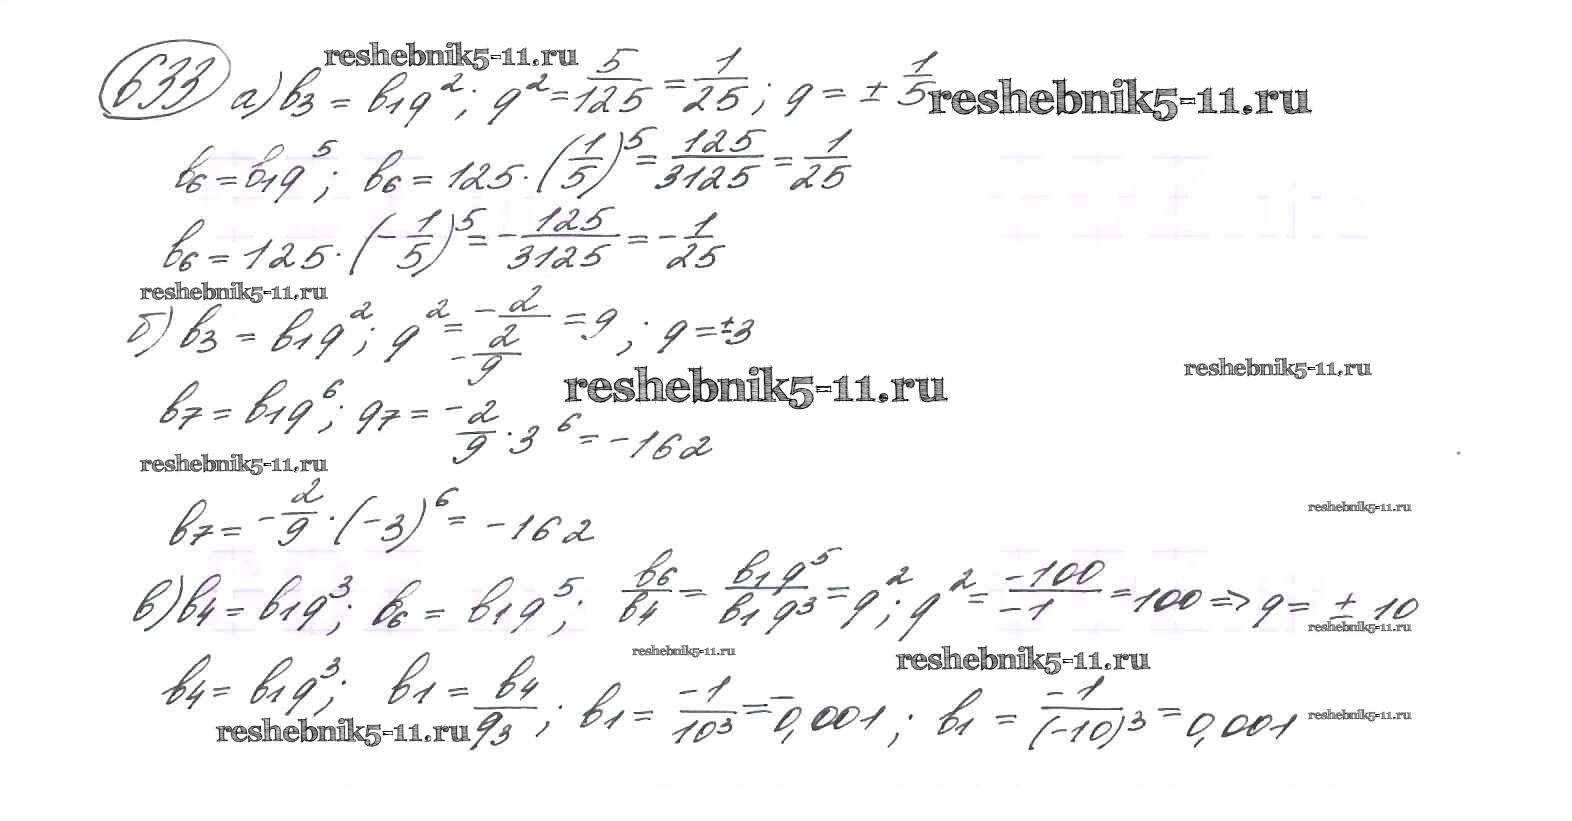 reshebnik5-11.ru
633 а) b₃ = b₁q²; q² = 5/125 = 1/25; q = ± 1/5 reshebnik5-11.ru
b₆ = b₁q⁵; b₆ = 125·(1/5)⁵ = 125/3125 = 1/25
b₆ = 125·(-1/5)⁵ = -125/3125 = -1/25
reshebnik5-11.ru
б) b₃ = b₁q²; q² = -2/(-2/9) = 9; q = ±3
reshebnik5-11.ru reshebnik5-11.ru
b₇ = b₁q⁶; q₇ = -2/9·3⁶ = -162
reshebnik5-11.ru
b₇ = -2/9·(-3)⁶ = -162 reshebnik5-11.ru
в) b₄ = b₁q³; b₆ = b₁q⁵; b₆/b₄ = b₁q⁵/b₁q³ = q²; q² = -100/-1 = 100 => q = ± 10
reshebnik5-11.ru
reshebnik5-11.ru reshebnik5-11.ru
b₄ = b₁q³; b₁ = b₄/q₃; b₁ = -1/10³ = -0,001; b₁ = -1/(-10)³ = 0,001 reshebnik5-11.ru
reshebnik5-11.ru